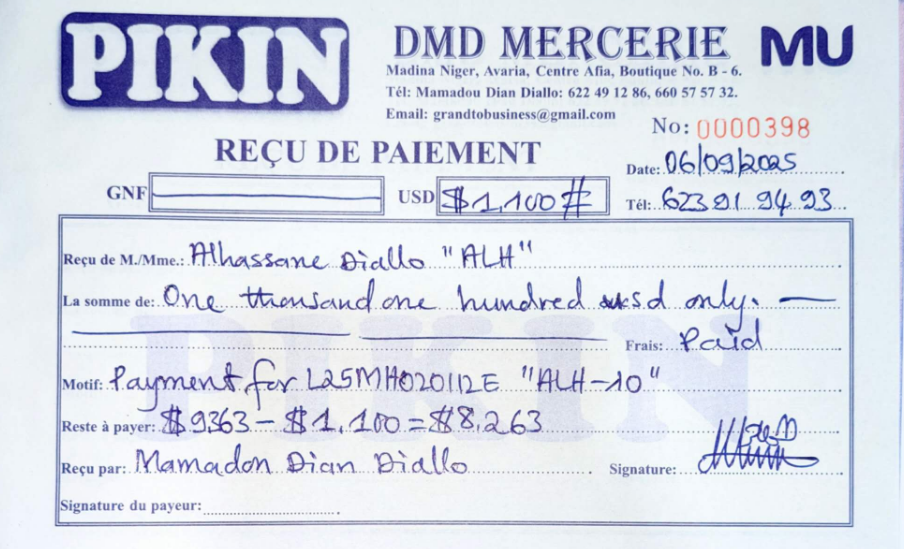 PIKIN
DMD MERCERIE
MU
Madina Niger, Avaria, Centre Afia, Boutique No. B - 6.
Tél: Mamadou Dian Diallo: 622 49 12 86, 660 57 57 32.
Email: grandtobusiness@gmail.com
No: 0000398
REÇU DE PAIEMENT
Date: 06/09/2025
GNF
USD $1,100#
Tél: 623 91 94 93
Reçu de M./Mme.: Alhassane Diallo "ALH"
La somme de: One thousand one hundred usd only.
Frais: Paid
Motif: Payment for L25MH020112E "ALH-10"
Reste à payer: $9363 - $1,100 = $8,263
Reçu par: Mamadou Dian Diallo
Signature:
Signature du payeur:
PIKIN